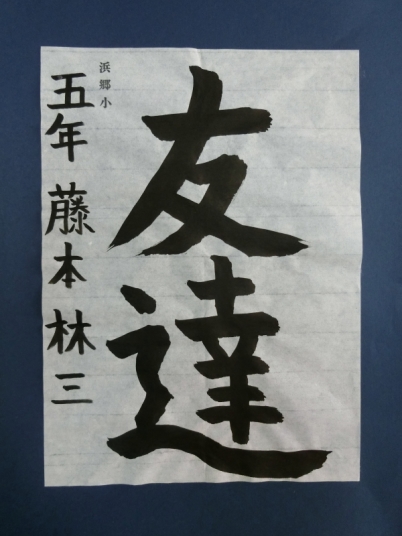 友達
浜郷小
五年 藤本 林三